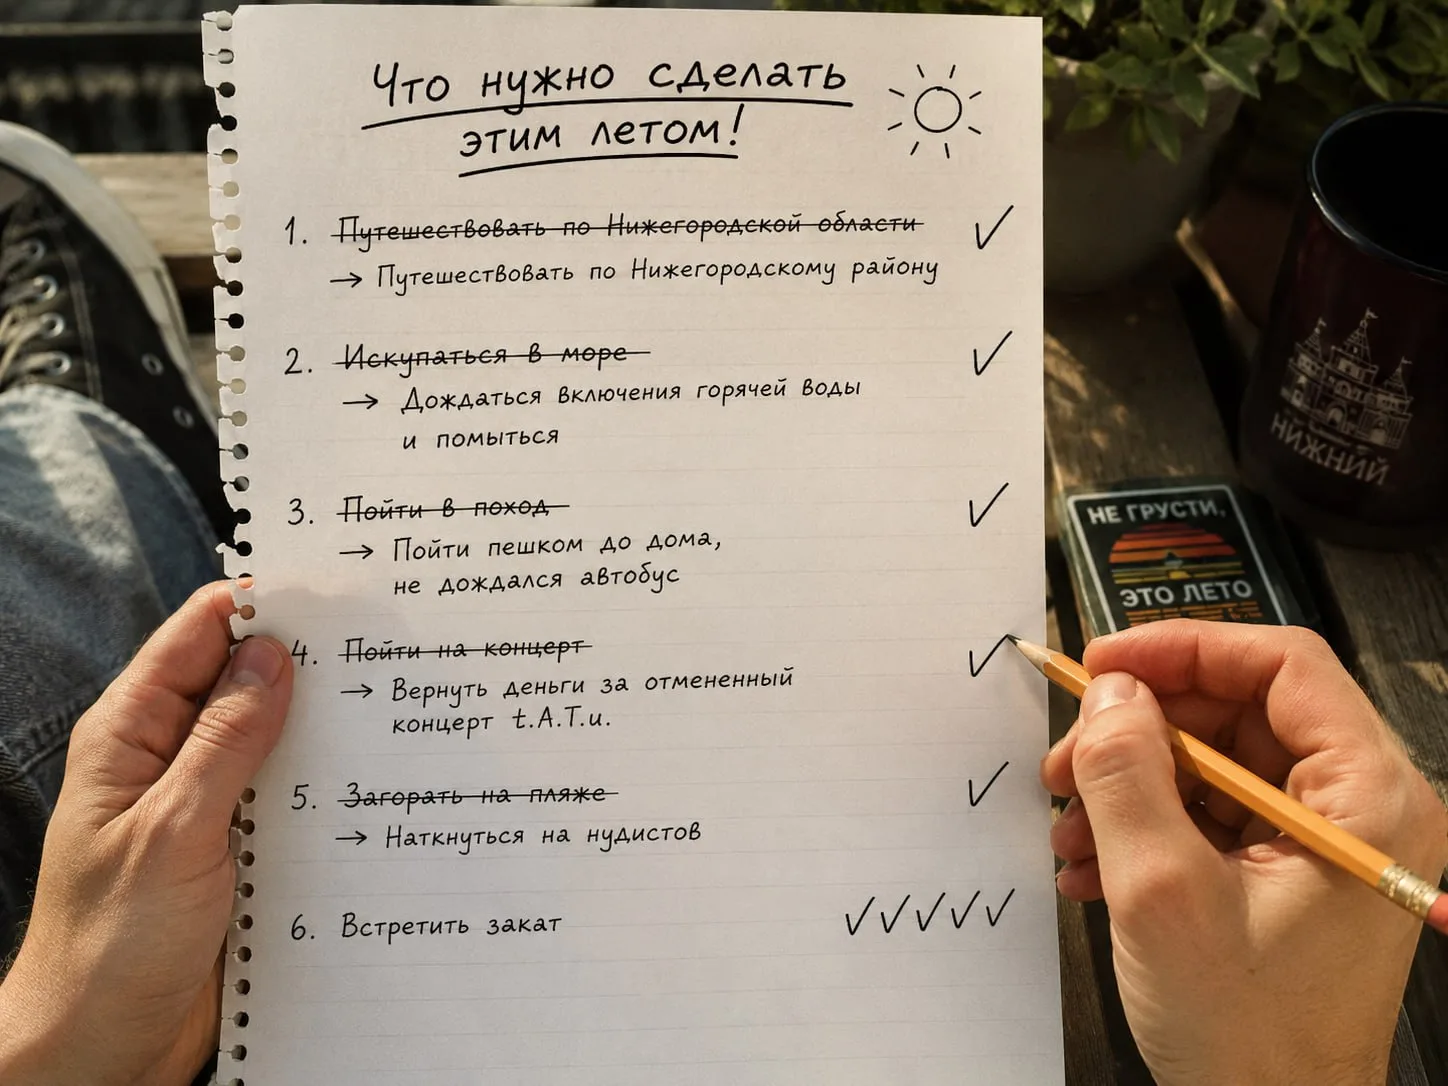 Что нужно сделать
этим летом!
1. Путешествовать по Нижегородской области
→ Путешествовать по Нижегородскому району
2. Искупаться в море
→ Дождаться включения горячей воды
и помыться
3. Пойти в поход
→ Пойти пешком до дома,
не дождался автобус
4. Пойти на концерт
→ Вернуть деньги за отмененный
концерт t.A.T.u.
5. Загорать на пляже
→ Наткнуться на нудистов
6. Встретить закат
НИЖНИЙ
НЕ ГРУСТИ,
ЭТО ЛЕТО